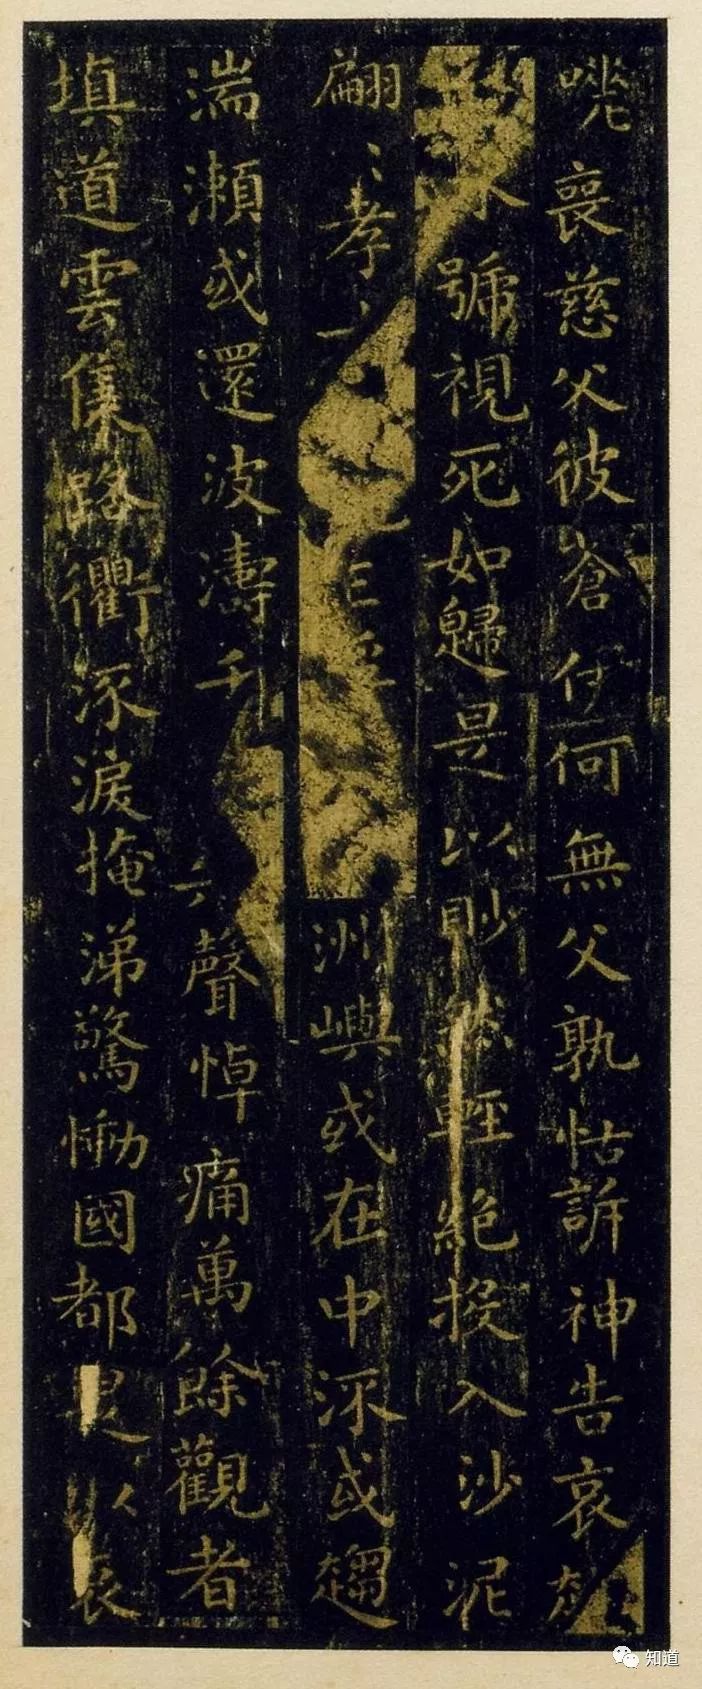 咷喪慈父彼蒼伊何無父孰怙訴神告哀
水號視死如歸是以眇然輕絕投入沙泥
翩〻孝 洲嶼或在中流或趨
湍瀬或還波濤千 聲悼痛萬餘觀者
填道雲集路衢泳淚掩涕驚慟國都是以哀
知道